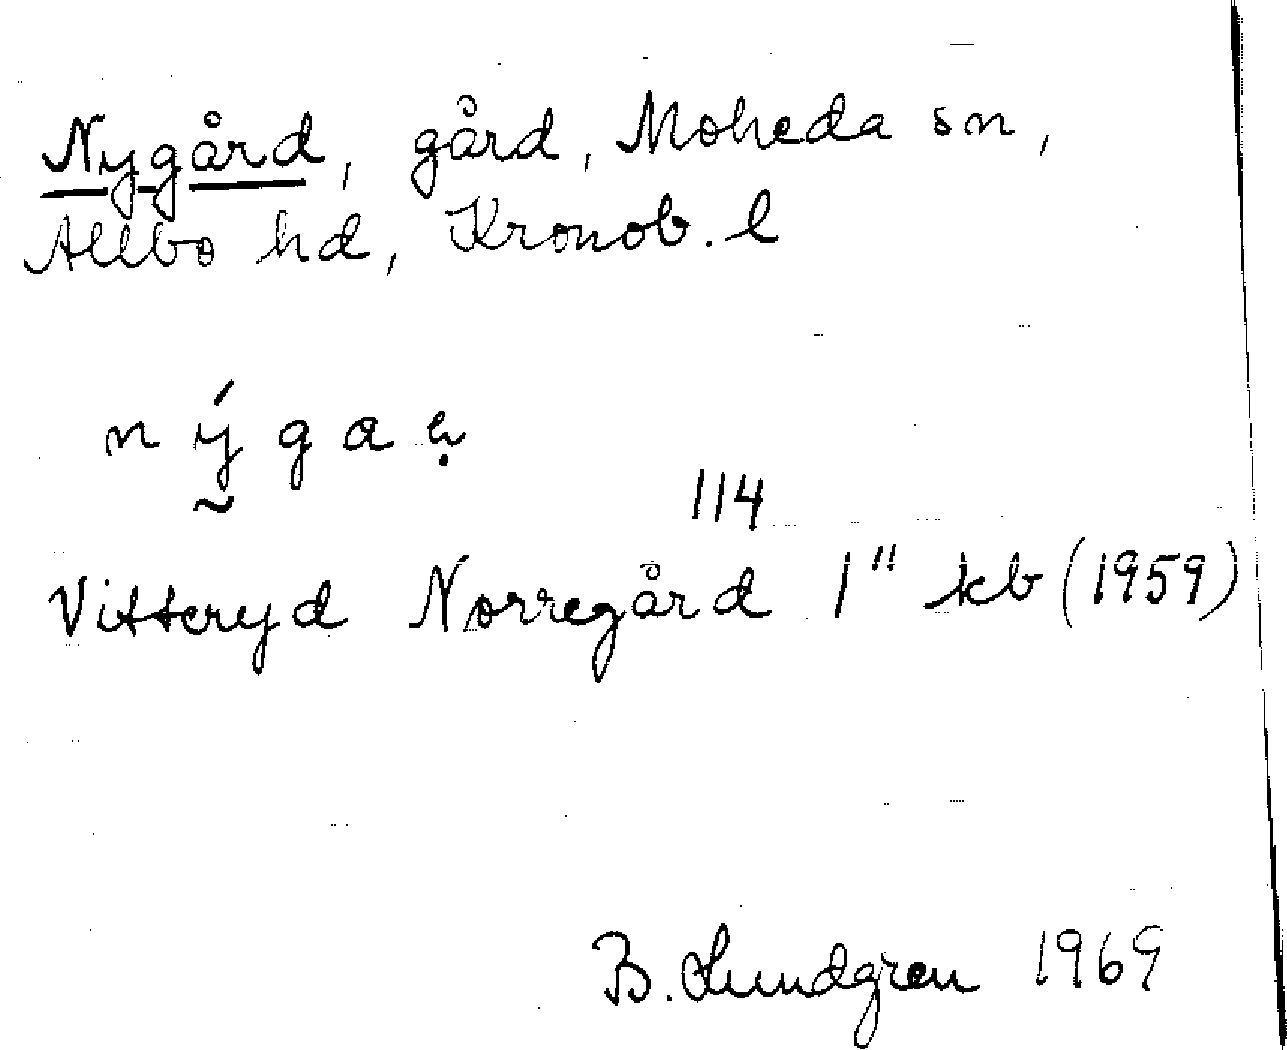 Nygård, gård, Moheda sn,
Allbo hd, Kronob. l
114
Vitteryd Norregård 1" kb (1959)
B. Lundgren 1969